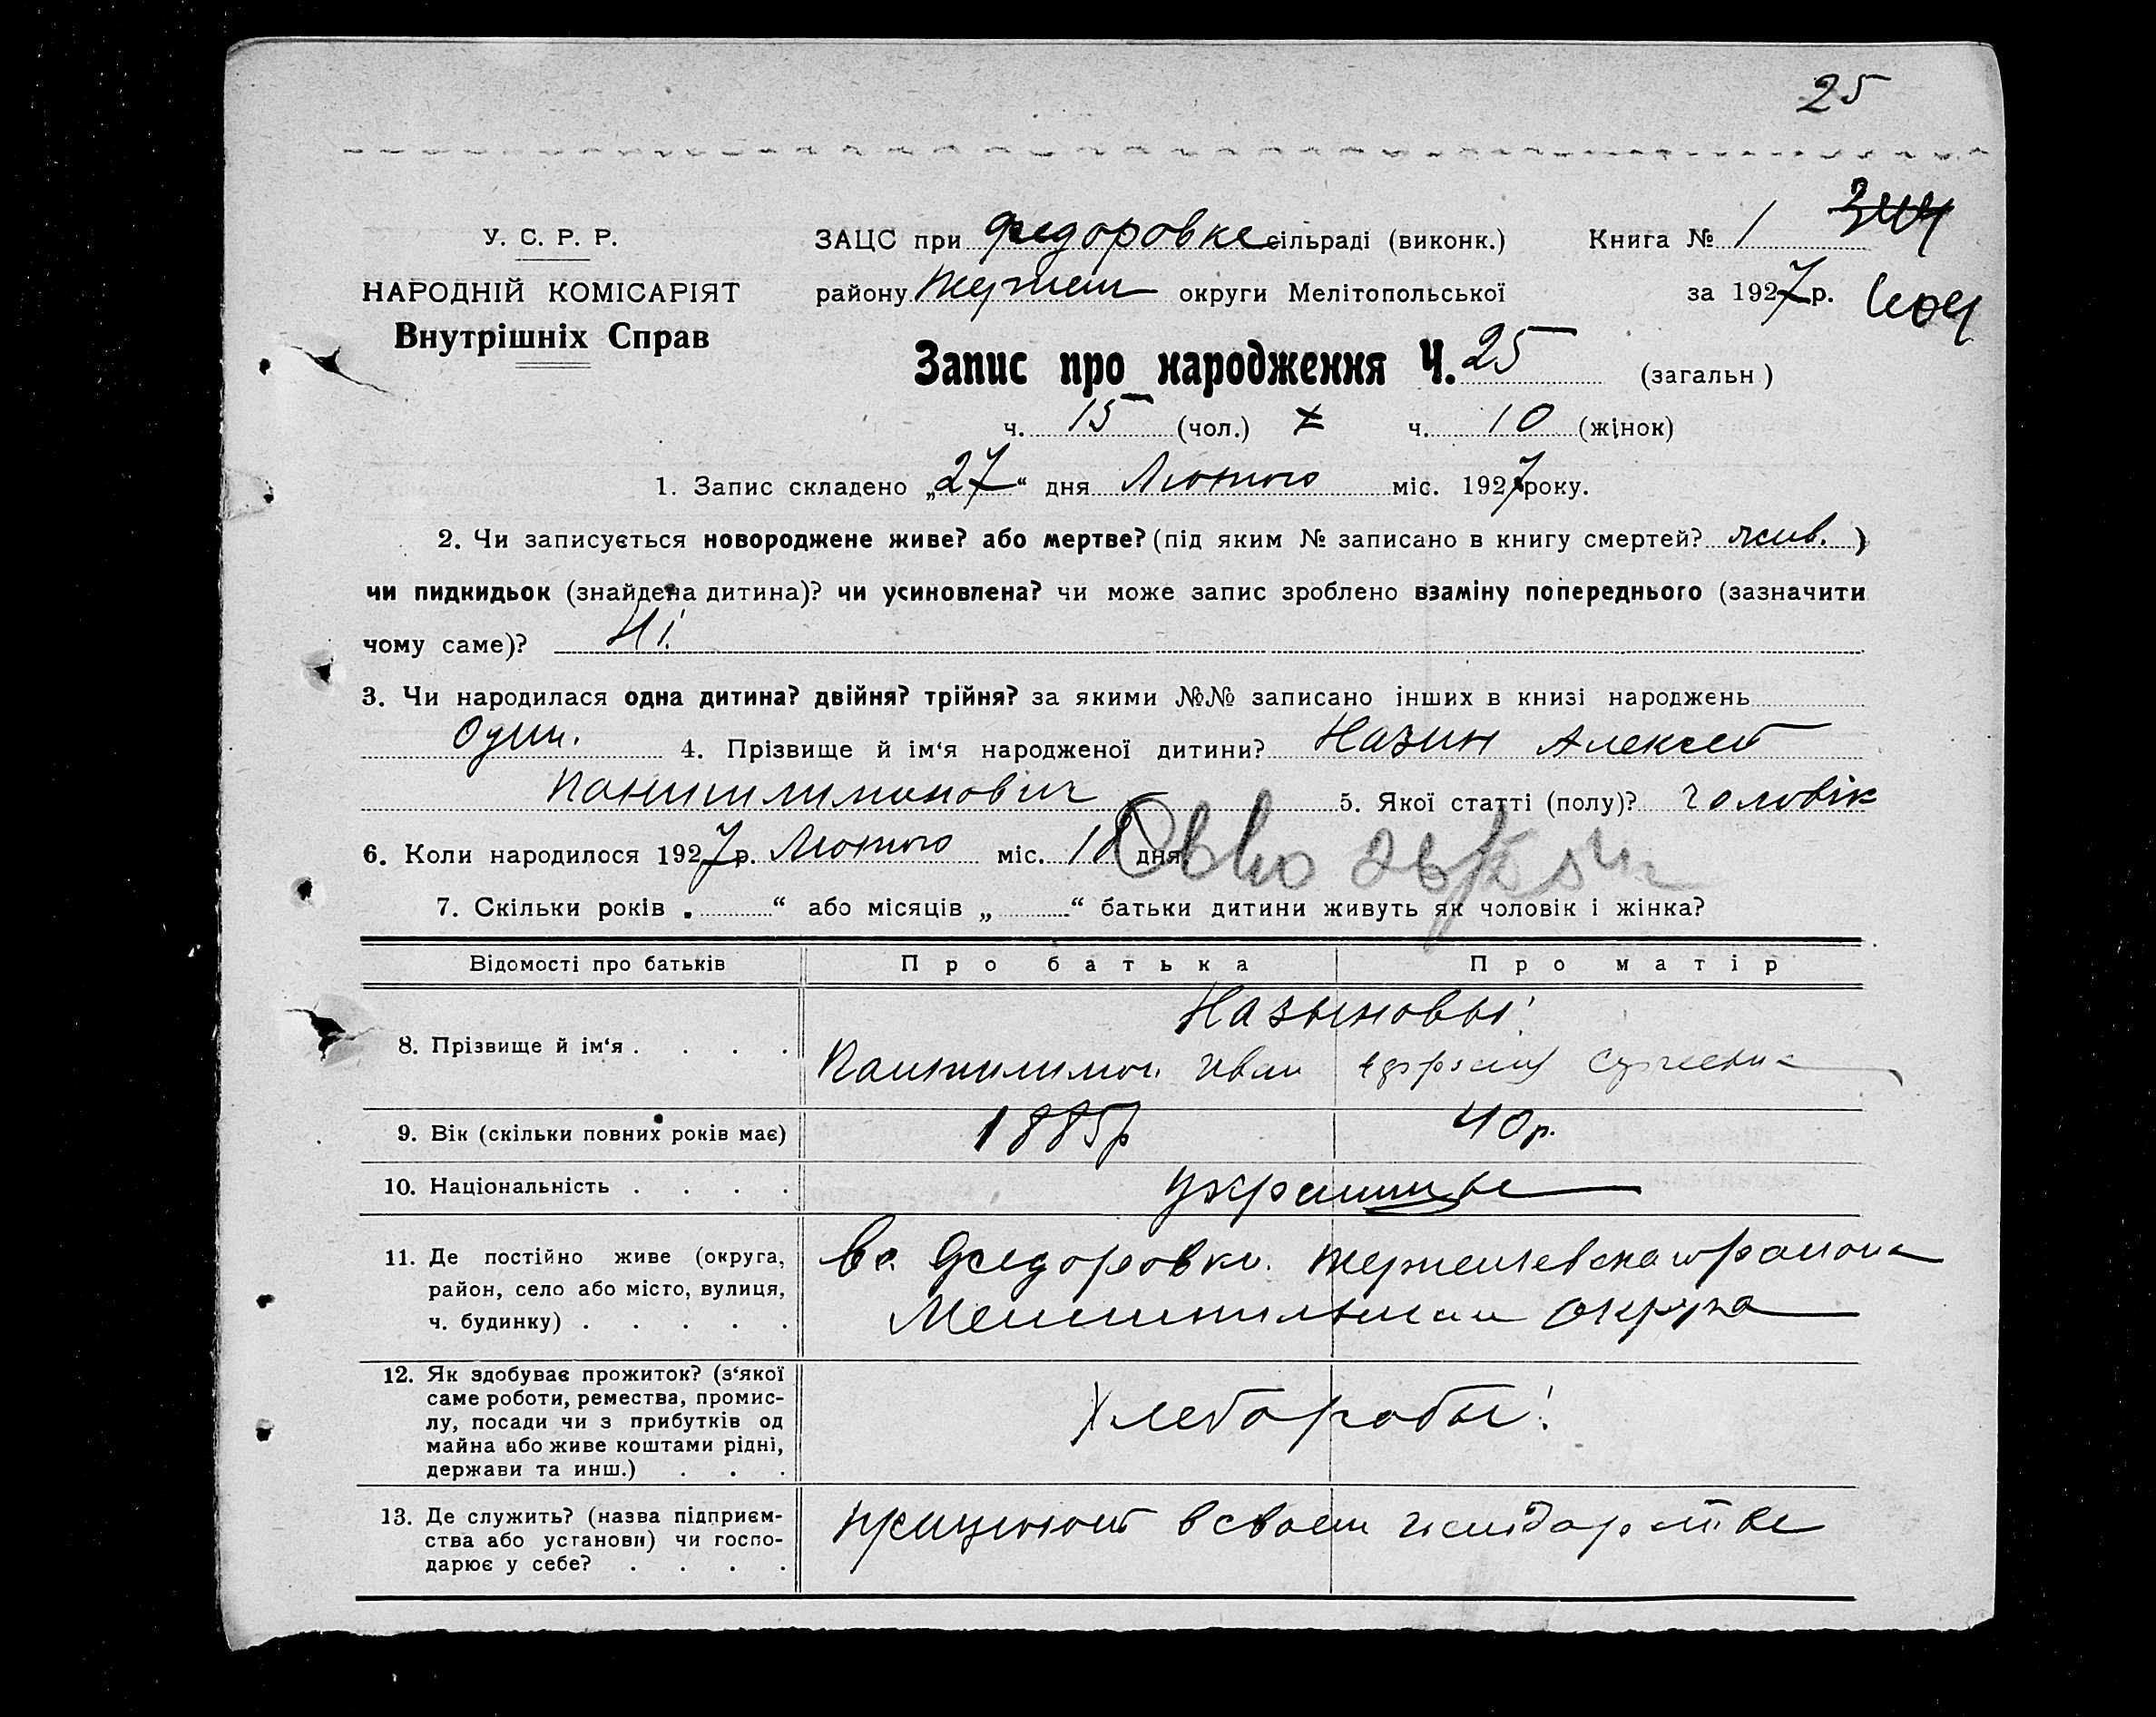 25
У. С. Р. Р.
НАРОДНІЙ КОМІСАРІЯТ
Внутрішніх Справ
ЗАЦС при Федоровке сільраді (виконк.) Книга № 1
району округи Мелітопольської за 1927 р.
Запис про народження Ч. 25 (загальн)
ч. 15 (чол.) ч. 10 (жінок)
1. Запис складено „27“ дня Лютого міс. 1927 року.
2. Чи записується новороджене живе? або мертве? (під яким № записано в книгу смертей? жив. )
чи пидкидьок (знайдена дитина)? чи усиновлена? чи може запис зроблено взаміну попереднього (зазначити
чому саме)? Ні.
3. Чи народилася одна дитина? двійня? трійня? за якими №№ записано інших в книзі народжень
Один. 4. Прізвище й ім‘я народженої дитини? Назин Алексей
5. Якої статті (полу)? чоловік
6. Коли народилося 1927 р. Лютого міс. 18 дня.
7. Скільки років „ “ або місяців „ “ батьки дитини живуть як чоловік і жінка?
Відомості про батьків Про батька Про матір
Назыновы
8. Прізвище й ім‘я . . . . Пантилимон Иван
9. Вік (скільки повних років має) 1885р 40р.
10. Національність . . . . украинцы
11. Де постійно живе (округа, в с. Федоровки.
район, село або місто, вулиця,
ч. будинку) . . . . . округа
12. Як здобуває прожиток? (з‘якої
саме роботи, ремества, промис-
лу, посади чи з прибутків од Хлеборобы!
майна або живе коштами рідні,
держави та инш.) . . .
13. Де служить? (назва підприєм- працюют в своем господарстве
ства або установи) чи госпо-
дарює у себе? . . . .